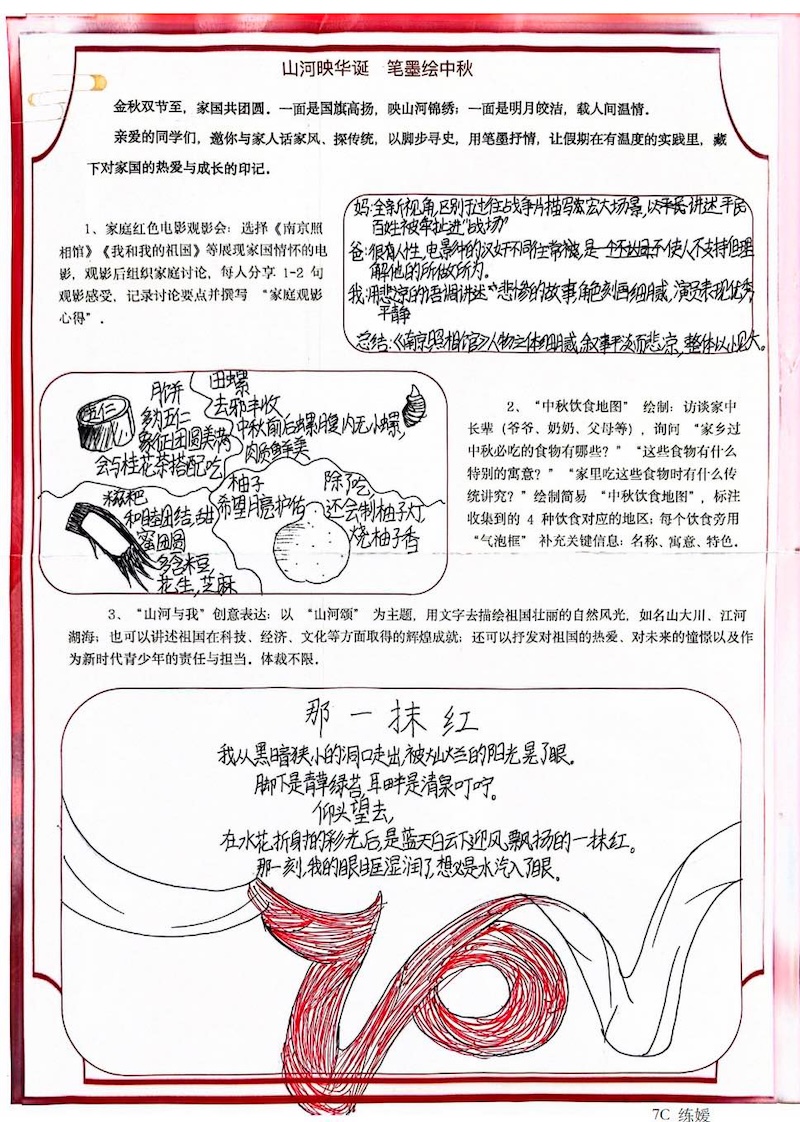 山河映华诞 笔墨绘中秋
金秋双节至，家国共团圆。一面是国旗高扬，映山河锦绣；一面是明月皎洁，载人间温情。
亲爱的同学们，邀你与家人话家风、探传统，以脚步寻史，用笔墨抒情，让假期在有温度的实践里，藏
下对家国的热爱与成长的印记。
1、家庭红色电影观影会：选择《南京照
相馆》《我和我的祖国》等展现家国情怀的电
影，观影后组织家庭讨论，每人分享 1-2 句
观影感受，记录讨论要点并撰写 “家庭观影
心得”．
妈:全新视角,区别于过往战争片描写宏宏大场景,以平民讲述平民
百姓被牵扯进"战场"
爸:很有人性,电影中的汉奸不同往常
使人不支持但理
解他的所做所为。
我:用悲凉的语调讲述悲惨的故事角色刻画细腻,演员表现优秀
平静
总结:《南京照相馆》人物立体细腻,叙事平淡而悲凉,整体以小见大。
五仁
月饼
多为五仁
象征团圆美满
会与桂花茶搭配吃
田螺
去邪丰收
中秋前后螺腹内无小螺,
肉质鲜美
糍粑
和睦团结,甜
蜜团圆
多含米豆,
花生,芝麻
柚子
希望月亮护佑
除了吃,
还会制柚子灯,
烧柚子香
2、“中秋饮食地图” 绘制：访谈家中
长辈（爷爷、奶奶、父母等），询问 “家乡过
中秋必吃的食物有哪些？” “这些食物有什么
特别的寓意？” “家里吃这些食物时有什么传
统讲究？” 绘制简易 “中秋饮食地图”，标注
收集到的 4 种饮食对应的地区；每个饮食旁用
“气泡框” 补充关键信息：名称、寓意、特色．
3、“山河与我”创意表达：以 “山河颂” 为主题，用文字去描绘祖国壮丽的自然风光，如名山大川、江河
湖海；也可以讲述祖国在科技、经济、文化等方面取得的辉煌成就；还可以抒发对祖国的热爱、对未来的憧憬以及作
为新时代青少年的责任与担当．体裁不限．
那一抹红
我从黑暗狭小的洞口走出,被灿烂的阳光晃了眼。
脚下是青草绿苔,耳畔是清泉叮咛。
仰头望去,
在水花折射的彩光后,是蓝天白云下迎风飘扬的一抹红。
那一刻,我的眼眶湿润了,想必是水汽入了眼。
7C 练媛